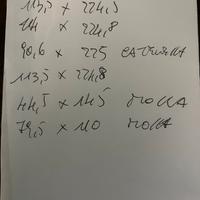 113,5 x 224,5
114 x 224,8
90,6 x 225
113,5 x 224,8
44,5 x 145 MOLLA
79,5 x 110 MOLLA